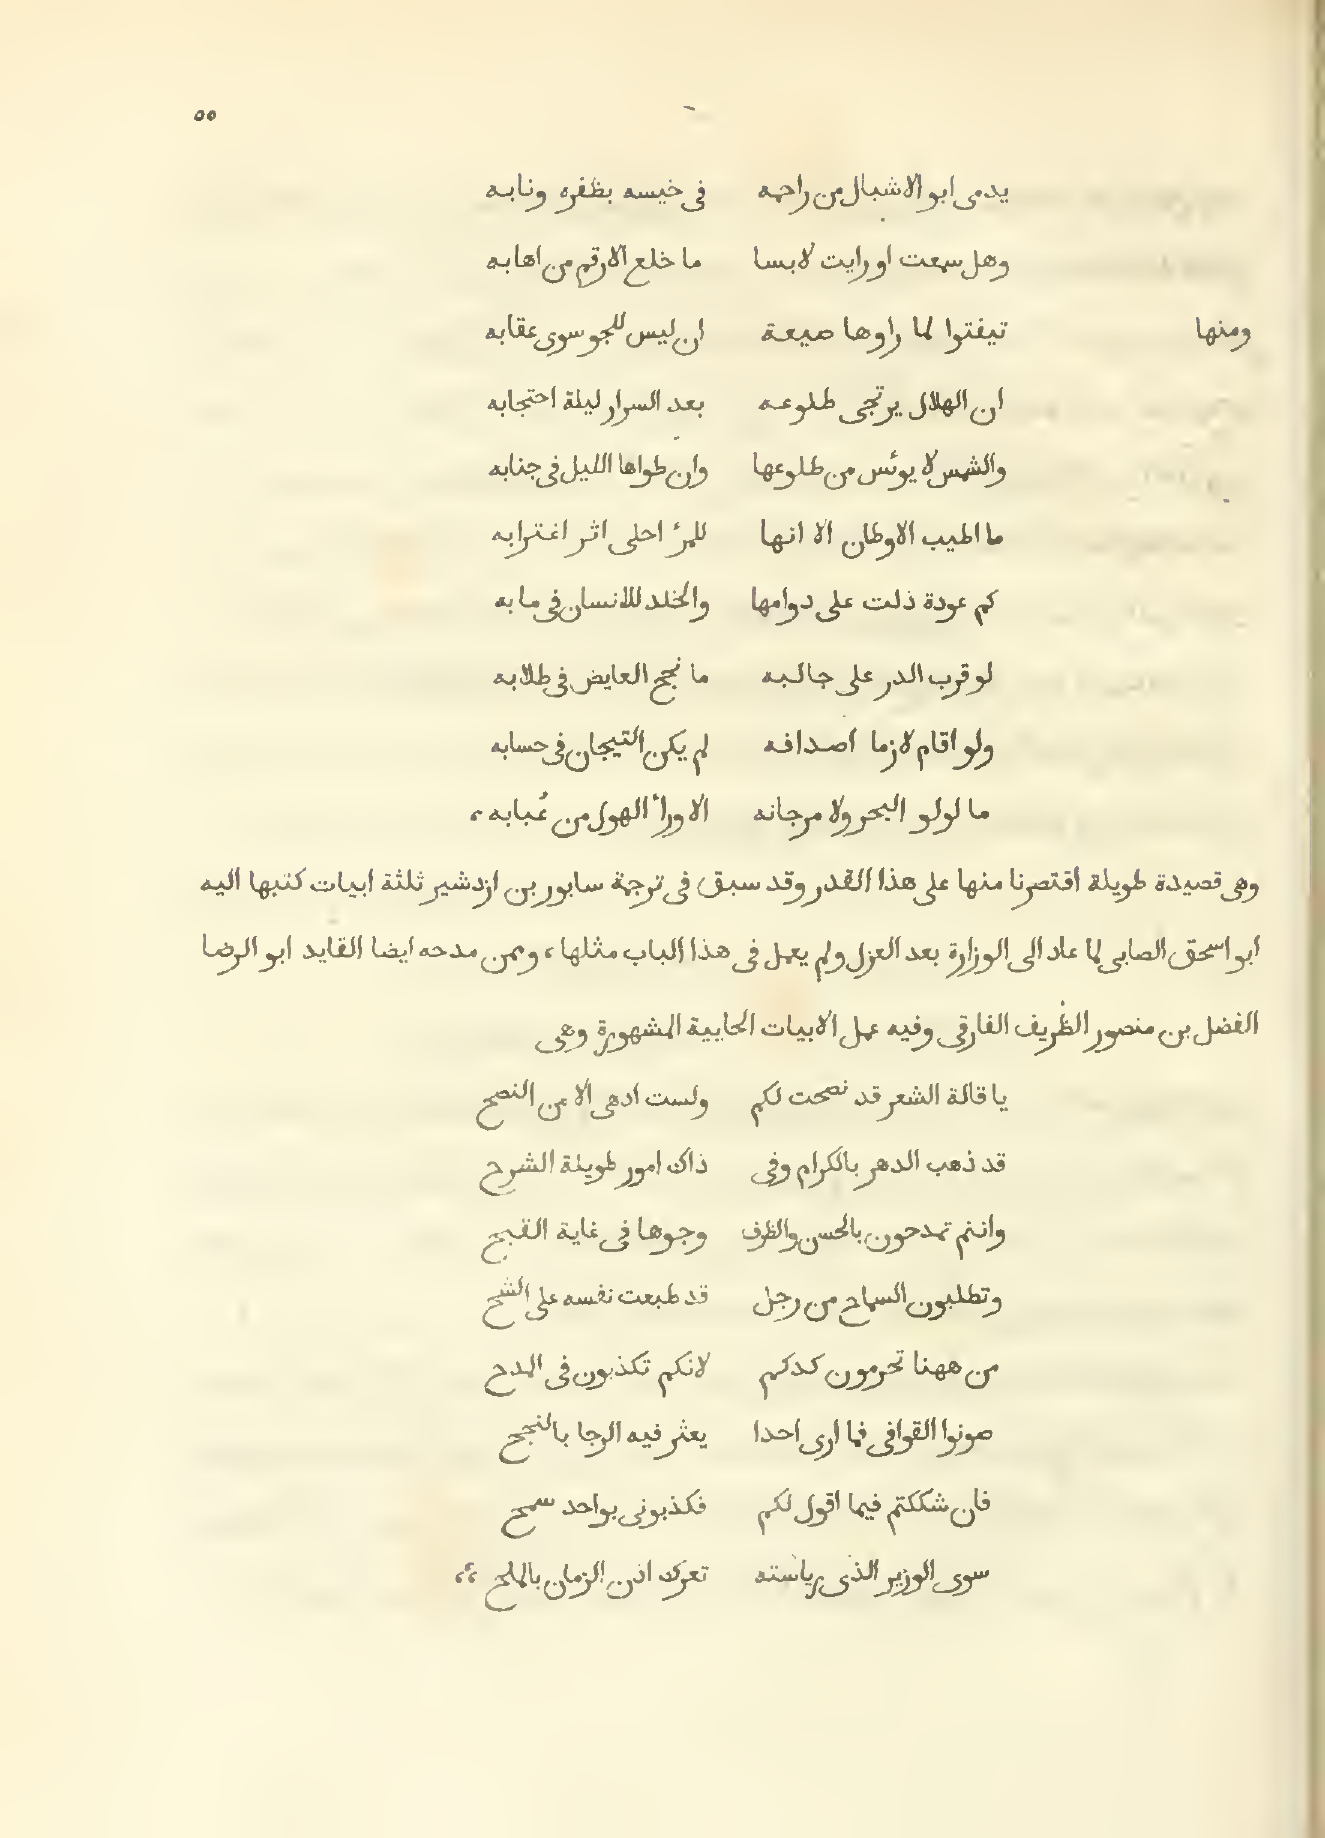 ٥٥
يدمى ابو الاشبال من زاحمه في خيسه بظفره ونابه
وهل سمعت او رايت لابسا ما خلع الارقم من اهابه
ومنها تيقنوا لما راوها ضيعة ان ليس للجو سوى عقابه
ان الهلال يرتجى طلوعه بعد السرار ليلة احتجابه
والشمس لا يوئس من طلوعها وان طواها الليل في جنابه
ما اطيب الاوطان الا انها للمرء احلى اثر اغترابه
كم عودة دلت على دوامها والخلد للانسان في مابه
لو قرب الدر على جالبه ما نجح الغايض في طلابه
ولو اقام لازما اصدافه لم يكن التيجان في حسابه
ما لولو البحر ولا مرجانه الا وراء الهول من عُبابه ،
وهى قصيدة طويلة اقتصرنا منها على هذا القدر وقد سبق في ترجمة سابور بن ازدشير ثلثة ابيات كتبها اليه
ابو اسحق الصابى لما عاد الى الوزارة بعد العزل ولم يعمل في هذا الباب مثلها ، وممن مدحه ايضا القايد ابو الرضا
الفضل بن منصور الظريف الفارقى وفيه عمل الابيات الحايية المشهورة وهى
يا قالة الشعر قد نصحت لكم ولست ادهى الا من النصح
قد ذهب الدهر بالكرام وفى ذاك امور طويلة الشرح
وانتم تمدحون بالحسن والظرف وجوها في غاية القبح
وتطلبون السماح من رجل قد طبعت نفسه على الشح
من ههنا تحرمون كدكم لانكم تكذبون في المدح
صونوا القوافي فما ارى احدا يعثر فيه الرجا بالنجح
فان شككتم فيما اقول لكم فكذبونى بواحد سمح
سوى الوزير الذى رياسته تعرك اذن الزمان بالملح ،،